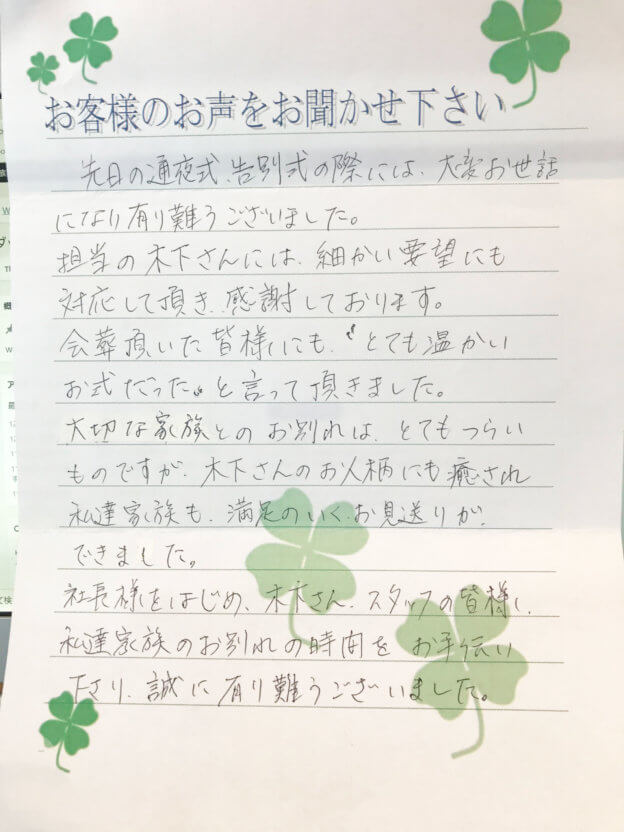 お客様のお声をお聞かせ下さい
先日の通夜式、告別式の際には、大変お世話
になり有り難うございました。
担当の木下さんには、細かい要望にも
対応して頂き、感謝しております。
会葬頂いた皆様にも、“とても温かい
お式だった”と言って頂きました。
大切な家族とのお別れは、とてもつらい
ものですが、木下さんのお人柄にも癒され
私達家族も、満足のいくお見送りが、
できました。
社長様をはじめ、木下さん、スタッフの皆様、
私達家族のお別れの時間をお手伝い
下さり、誠に有り難うございました。